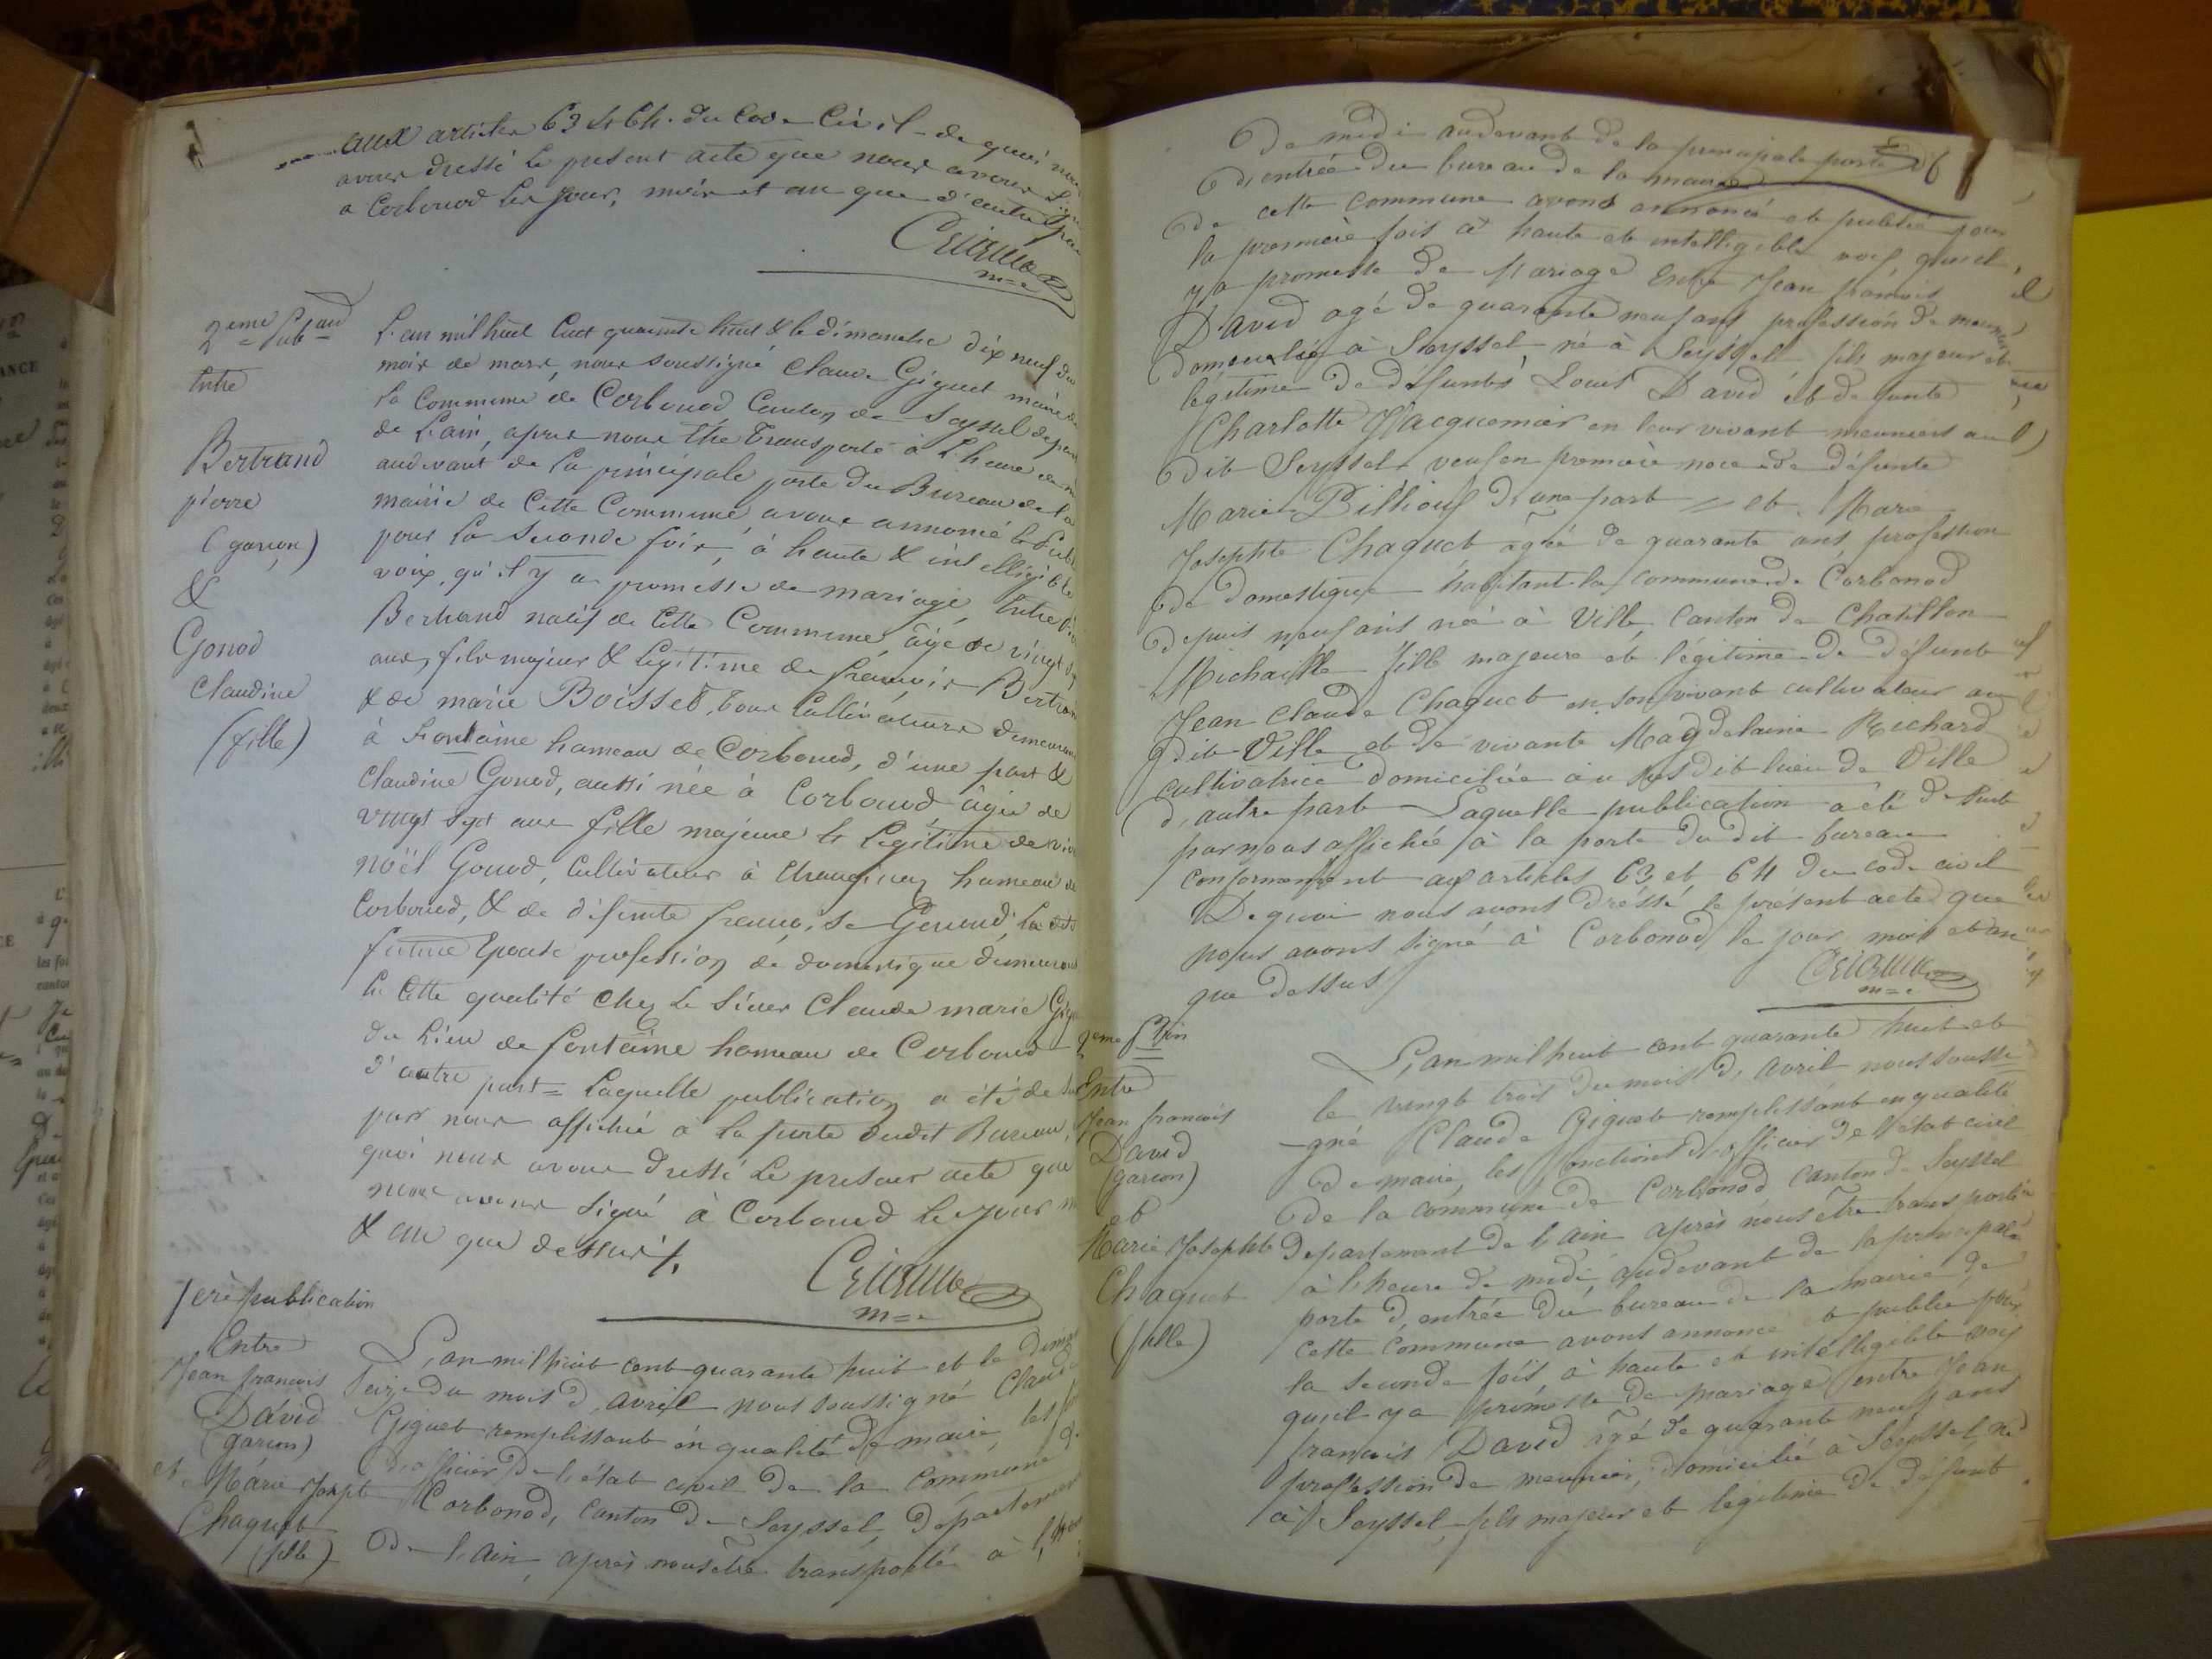 aux articles 63 et 64 du Code Civil de quoi nous
avons dressé le présent acte que nous avons signé
à Corbonod les jour, mois et an que d'autre part
m=e
2eme Pub=
Entre
Bertrand
pierre
(garçon)
&
Gonod
Claudine
(fille)
L'an mil huit Cent quarante huit & le dimanche dix neuf du
mois de mars, nous soussigné Claude Giguet maire de
la Commune de Corbonod Canton de Seyssel départ
de l'ain, après nous être transporté à l'heure de mi
audevant de la principale porte du Bureau de la
mairie de Cette Commune, avons annoncé & Publ
pour la Seconde fois, à haute & intelligible
voix, qu'il y a promesse de mariage, Entre Pie
Bertrand natif de Cette Commune, âgé de vingt
ans, fils majeur & légitime de françois Bertran
& de marie Boisset, tous Cultivateurs demeurant
à fontaine hameau de Corbonod, d'une part &
Claudine Gonod, aussi née à Corbonod âgée de
vingt sept ans fille majeure et légitime de viv
noël Gonod, Cultivateur à hameau de
Corbonod, & de défunte françoise la dite
future Epouse profession de domestique demeurant
En Cette qualité Chez le Sieur Claude marie Gigu
du lieu de fontaine hameau de Corbonod
d'autre part = Laquelle publication a été de suite
par nous affichée à la porte dudit Bureau,
quoi nous avons dressé le présent acte que
nous avons signé à Corbonod les jour m
& an que dessus /.
m=e
1ere publication
Entre
Jean francois
David
(garcon)
et Marie Joseph
Chaquet
(fille)
L'an mil huit cent quarante huit et le diman
seize du mois d'avril nous soussigné Claud
Giguet remplissant en qualité de maire, les fo
d'officier de l'état civil de la commune de
Corbonod, canton de Seyssel, département
de l'ain, après nous être transporté à l'heure
de midi audevant de la principale porte
d'entrée du bureau de la mairie
de cette commune avons annoncé et publié pour
la première fois à haute et intelligible voix, qu'il
y a promesse de Mariage Entre Jean francois
David agé de quarante neuf ans profession de meunier
domicilié à Seyssel né à Seyssel fils majeur et
légitime de défunts Louis David et de
Charlotte Jacquemier en leur vivant meuniers au
dit Seyssel veuf en première noce de défunte
Marie d'une part = et Marie
Josephte Chaquet âgée de quarante ans profession
de domestique habitant la commune de Corbonod
depuis neuf ans née à Ville, canton de Chatillon
Michaille fille majeure et légitime de défunt
Jean Claude Chaquet en son vivant cultivateur au
dit Ville et de vivante Magdelaine Richard
cultivatrice domiciliée au susdit lieu de Ville
d'autre part Laquelle publication a été de suite
par nous affichée à la porte du dit bureau
conformément aux articles 63 et 64 du code civil
De quoi nous avons dressé le présent acte que
nous avons signé à Corbonod le jour mois et an
que dessus
m=e
Entre
Jean francois
David
(garcon)
et
Marie Josephte
Chaquet
(fille)
L'an mil huit cent quarante huit et
le vingt trois du mois d'avril nous soussi
-gné Claude Giguet remplissant en qualité
de maire, les fonctions d'officier de l'état civil
de la commune de Corbonod canton de Seyssel
departement de l'ain après nous être transporté
à l'heure de midi, audevant de la principale
porte d'entrée du bureau de la mairie de
cette commune avons annoncé et publié pour
la seconde fois, à haute et intelligible voix
qu'il y a promesse de mariage entre Jean
francois David agé de quarante neuf ans
profession de meunier, domicilié à Seyssel né
à Seyssel, fils majeur et légitime de défunt